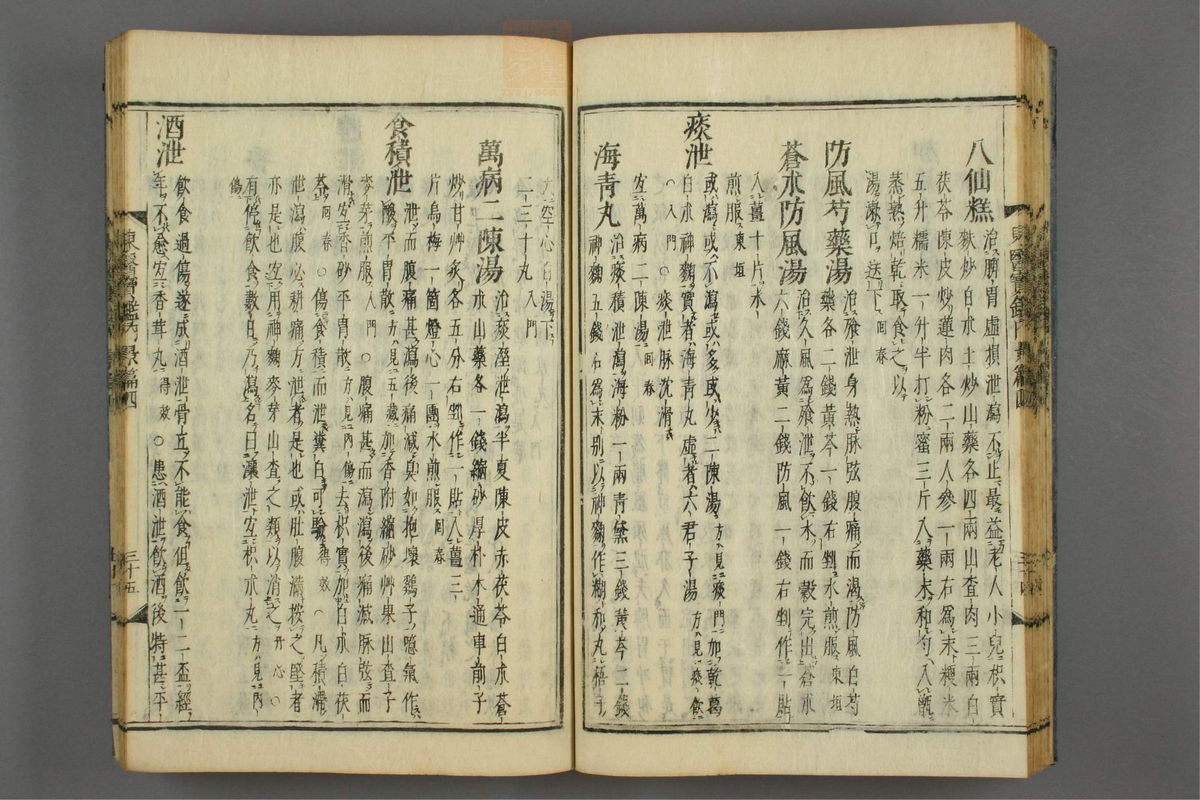 八仙糕 治脾胃虛損泄瀉不止最益老人小兒枳實
麩炒白朮土炒山藥各四兩山査肉三兩白
茯苓陳皮炒蓮肉各二兩人參一兩右爲末粳米
五升糯米一升半打粉蜜三斤入藥末和勻入甑
蒸熟焙乾取食之以
湯漱口送下 回春
防風芍藥湯 治飱泄身熱脉弦腹痛而渴防風白芍
藥各二錢黃芩一錢右剉水煎服 東垣
蒼朮防風湯 治久風爲飱泄不飮水而穀完出蒼朮
六錢麻黃二錢防風一錢右剉作一貼
入薑十片水
煎服 東垣
痰泄 或瀉或不瀉或多或少二陳湯 方見痰門 加乾葛
白朮神麴實者海青丸虛者六君子湯 方見痰飮
宜萬病二陳湯 回春
之 入門 ○痰泄脉沈滑
海青丸 治痰積泄瀉海粉一兩青黛三錢黃芩二錢
神麴五錢右爲末別以神麴作糊和丸梧子
大空心白湯下
二三十丸 入門
萬病二陳湯 治痰溼泄瀉半夏陳皮赤茯苓白朮蒼
朮山藥各一錢縮砂厚朴木通車前子
炒甘艸炙各五分右剉作一貼入薑三
片烏梅一箇燈心一團水煎服 回春
食積泄 泄而腹痛甚瀉後痛減臭如抱壞鷄子噫氣作
酸平胃散 方見五藏 加香附縮砂艸果山査子
麥芽煎服 入門 ○腹痛甚而瀉瀉後痛減脉弦而
滑宜香砂平胃散 方見內傷 去枳實加白朮白茯
苓 回春 ○傷食積而泄糞白可驗 得效 ○凡積滯
泄瀉腹必耕痛方泄者是也或肚腹滿按之堅者
亦是也宜用神麴麥芽山査之類以消之 丹心 ○
有停飮食數日乃瀉名曰瀼泄宜枳朮丸 方見內
傷
酒泄 飮食過傷遂成酒泄骨立不能食但飮一二盃經
年不愈宜香茸丸 得效 ○患酒泄飮酒後特甚平
東醫寶鑑內景篇四
三十五